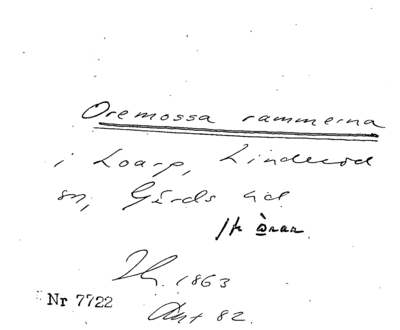 Oremossa rammerna
i Loarp, Linderöd
sn, Gärds hd.
/hh. 1863
Nr 7722
Ant 82.